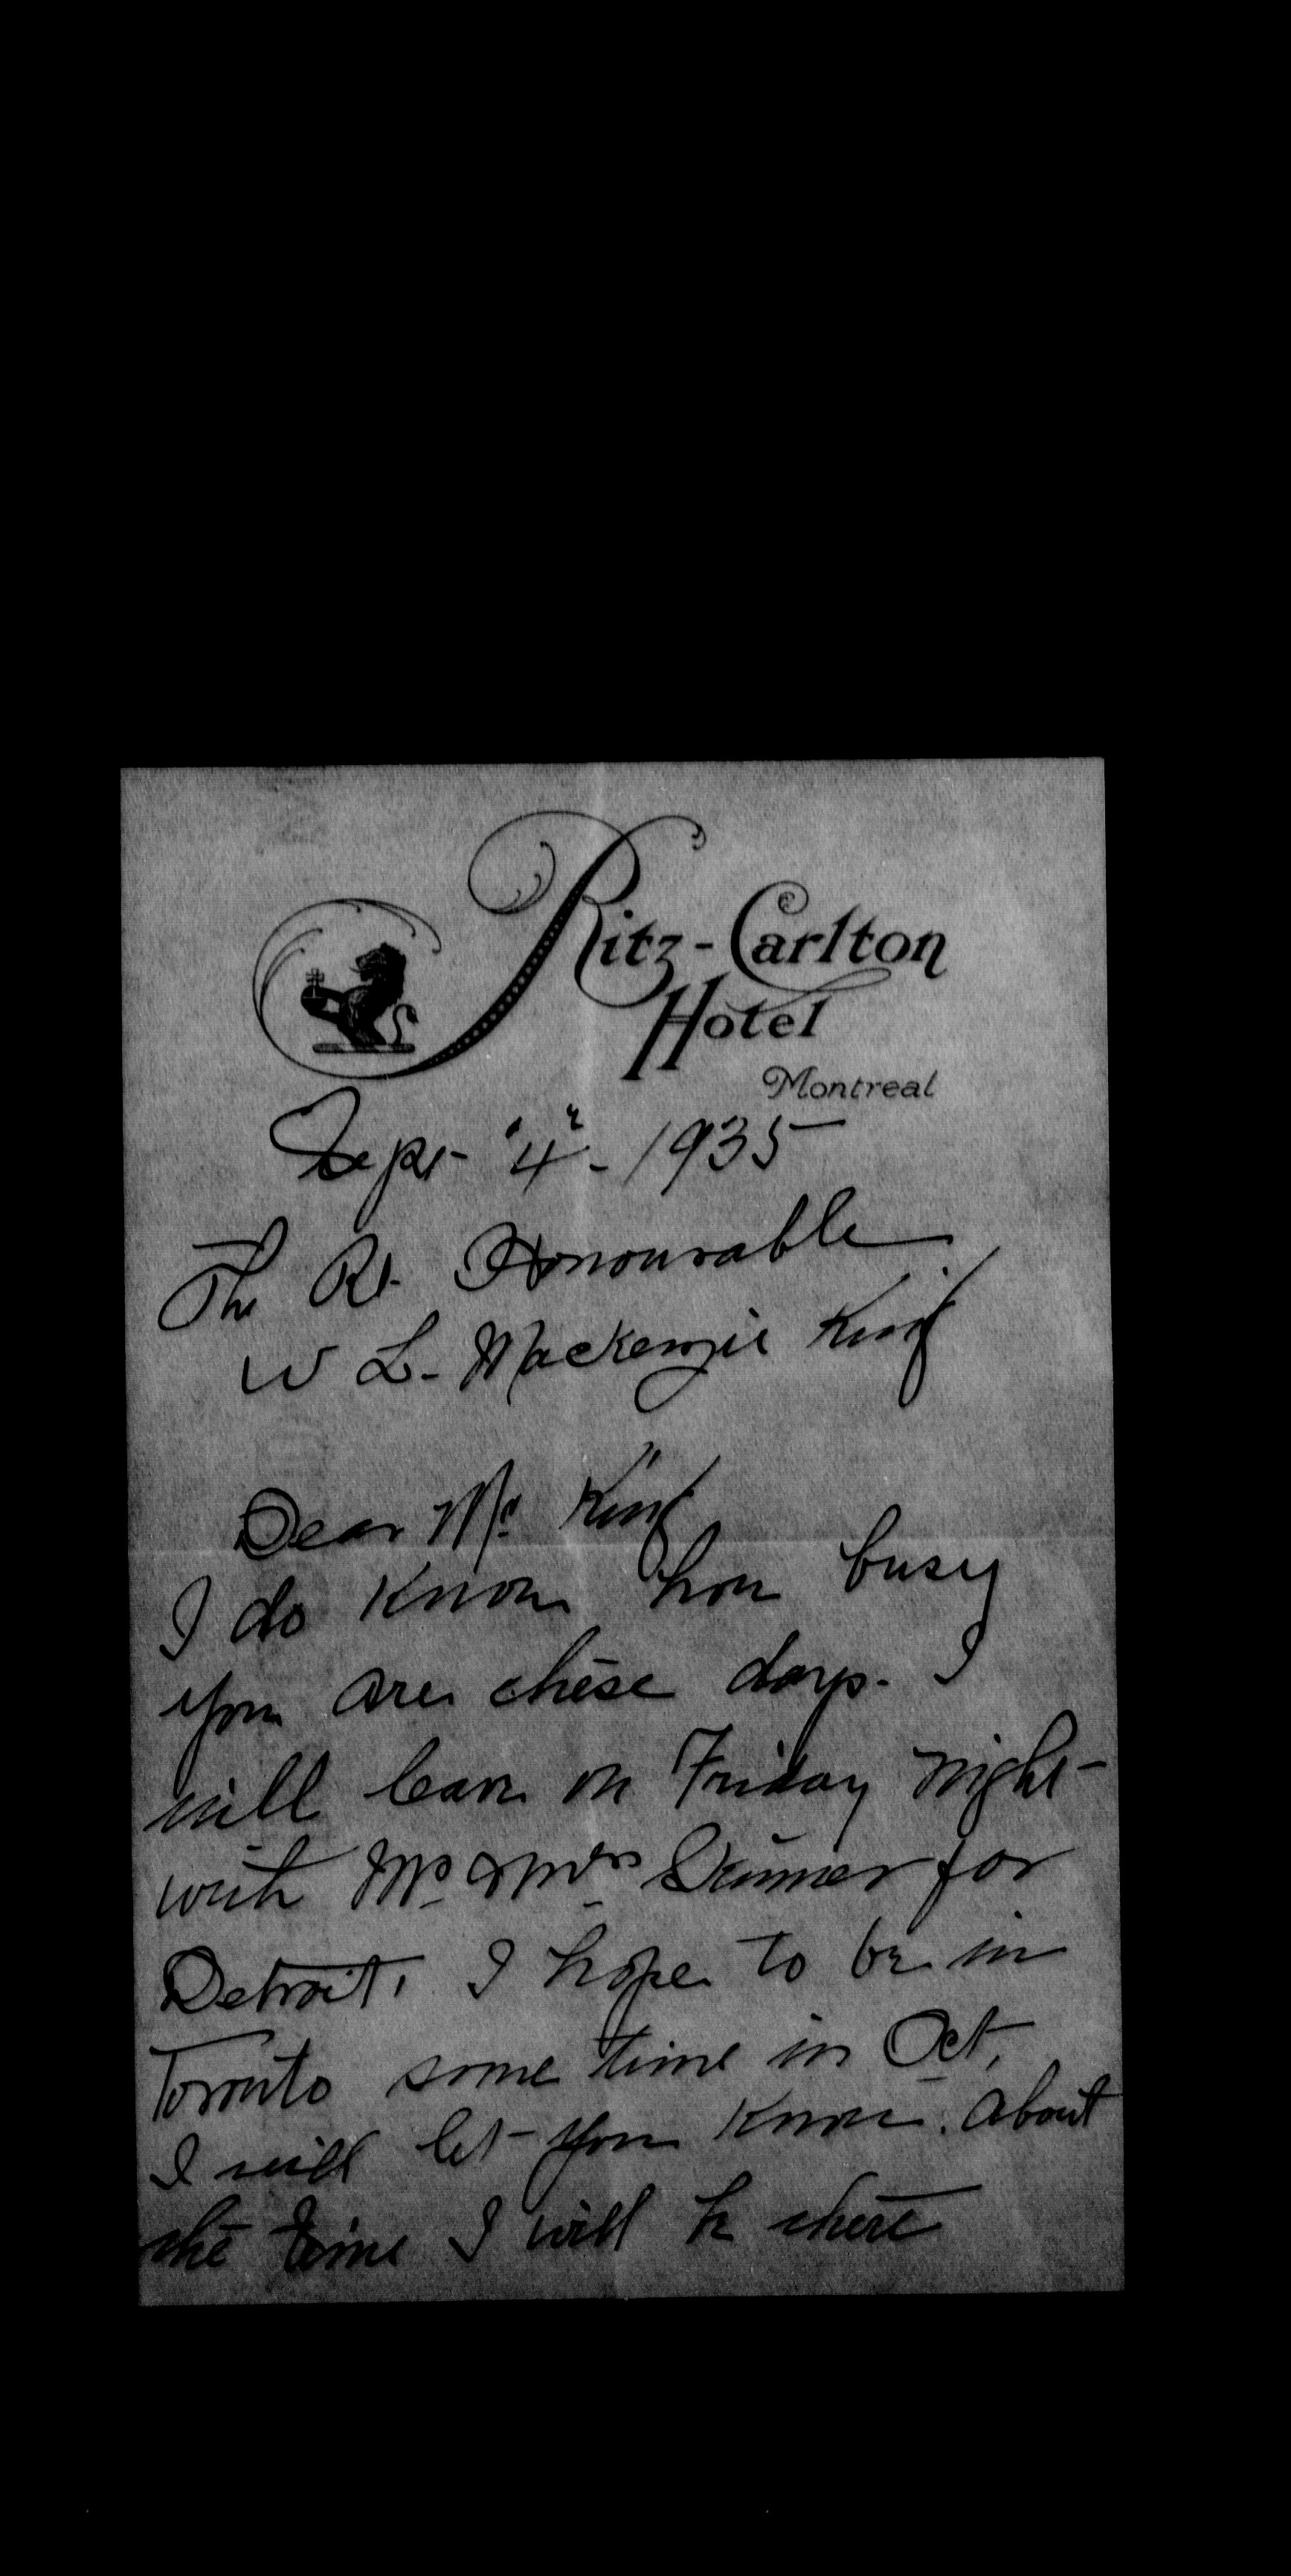 Ritz-Carlton
Hotel
Montreal
Sept 4- 1935
The Rt. Honourable
W L. Mackenzie King
Dear Mr. King
I do know how busy
you are these days. I
will leave on Friday night
with Mr & Mrs Skinner for
Detroit. I hope to be in
Toronto some time in Oct,
I will let you know about
the time I will be there